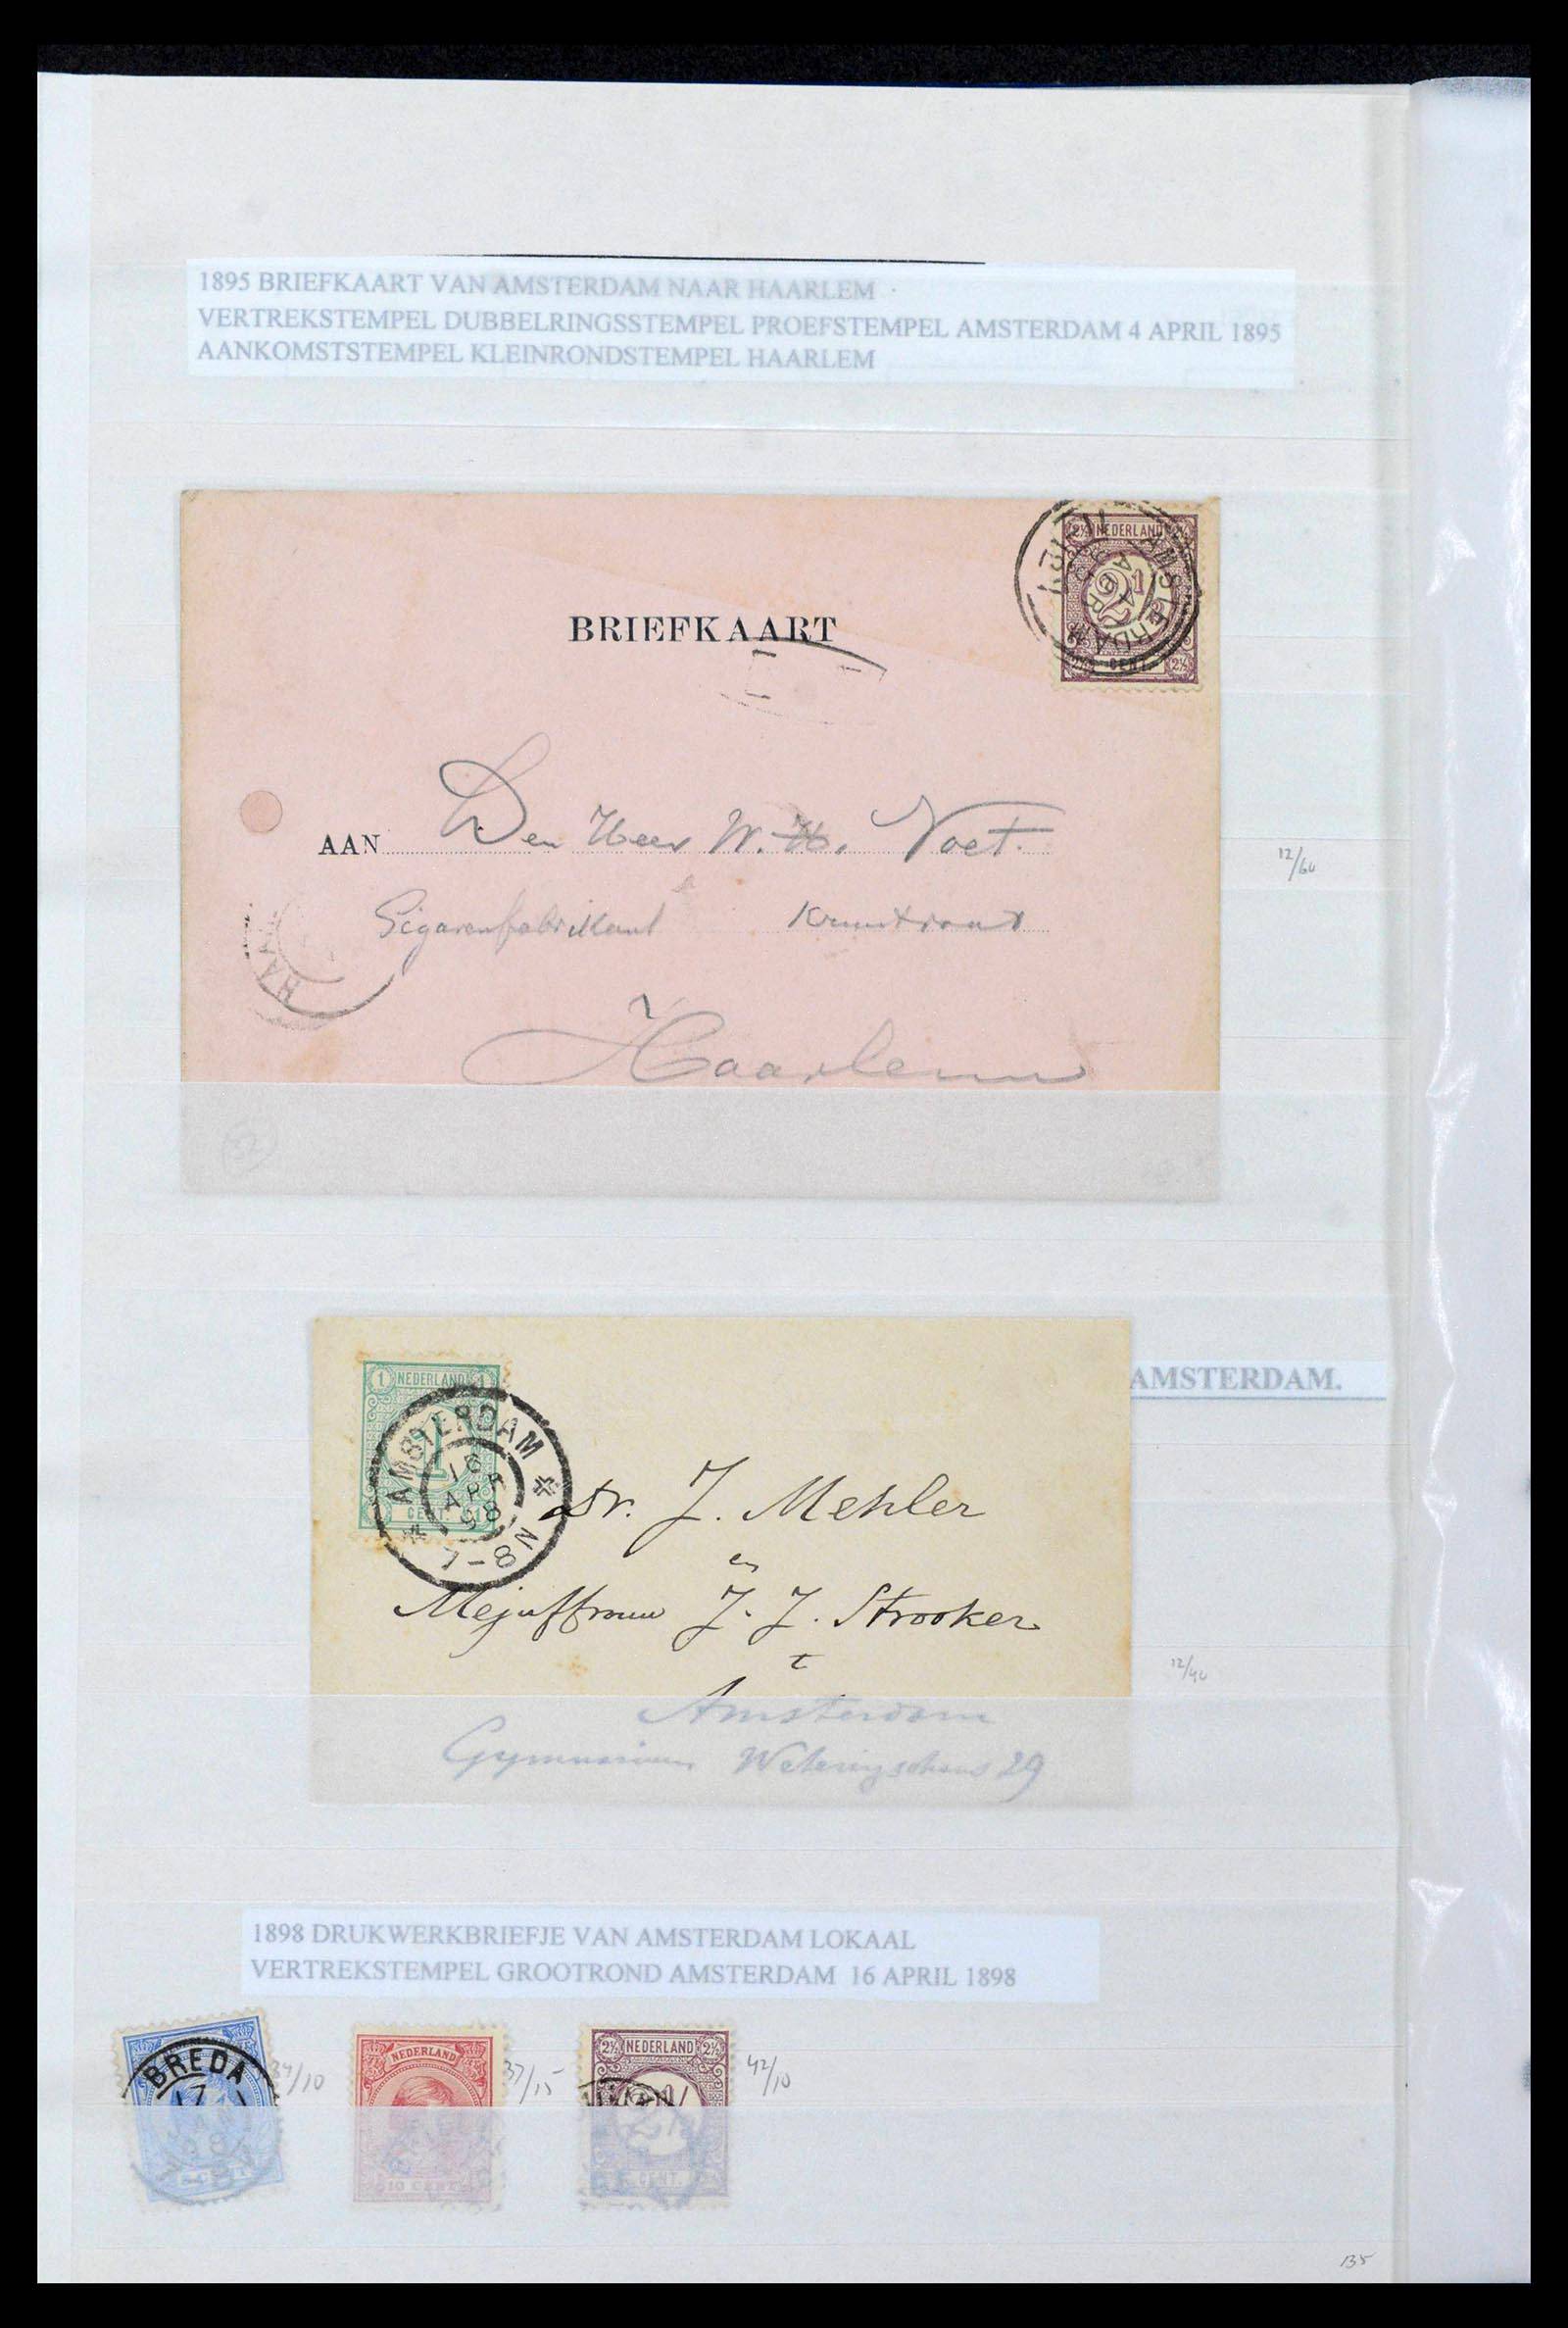 1895 BRIEFKAART VAN AMSTERDAM NAAR HAARLEM
VERTREKSTEMPEL DUBBELRINGSSTEMPEL PROEFSTEMPEL AMSTERDAM 4 APRIL 1895
AANKOMSTSTEMPEL KLEINRONDSTEMPEL HAARLEM
2½ NEDERLAND 2½
AMSTERDAM
2½ CENT. 2½
BRIEFKAART
AAN Den Heer W. H. Voet.
12/60
Sigarenfabrikant
HAA
Haarlem
52
AMSTERDAM.
1 NEDERLAND 1
AMSTERDAM
16
APR
98
7-8N
CENT.
Dr. J. Mehler
en
Mejuffrouw J. J. Strooker
t
12/40
Amsterdam
Gymnasium Weteringschans 29
1898 DRUKWERKBRIEFJE VAN AMSTERDAM LOKAAL
VERTREKSTEMPEL GROOTROND AMSTERDAM 16 APRIL 1898
BREDA
17
34/10
NEDERLAND
10 CENT
37/15
2½ NEDERLAND 2½
CENT.
42/10
135